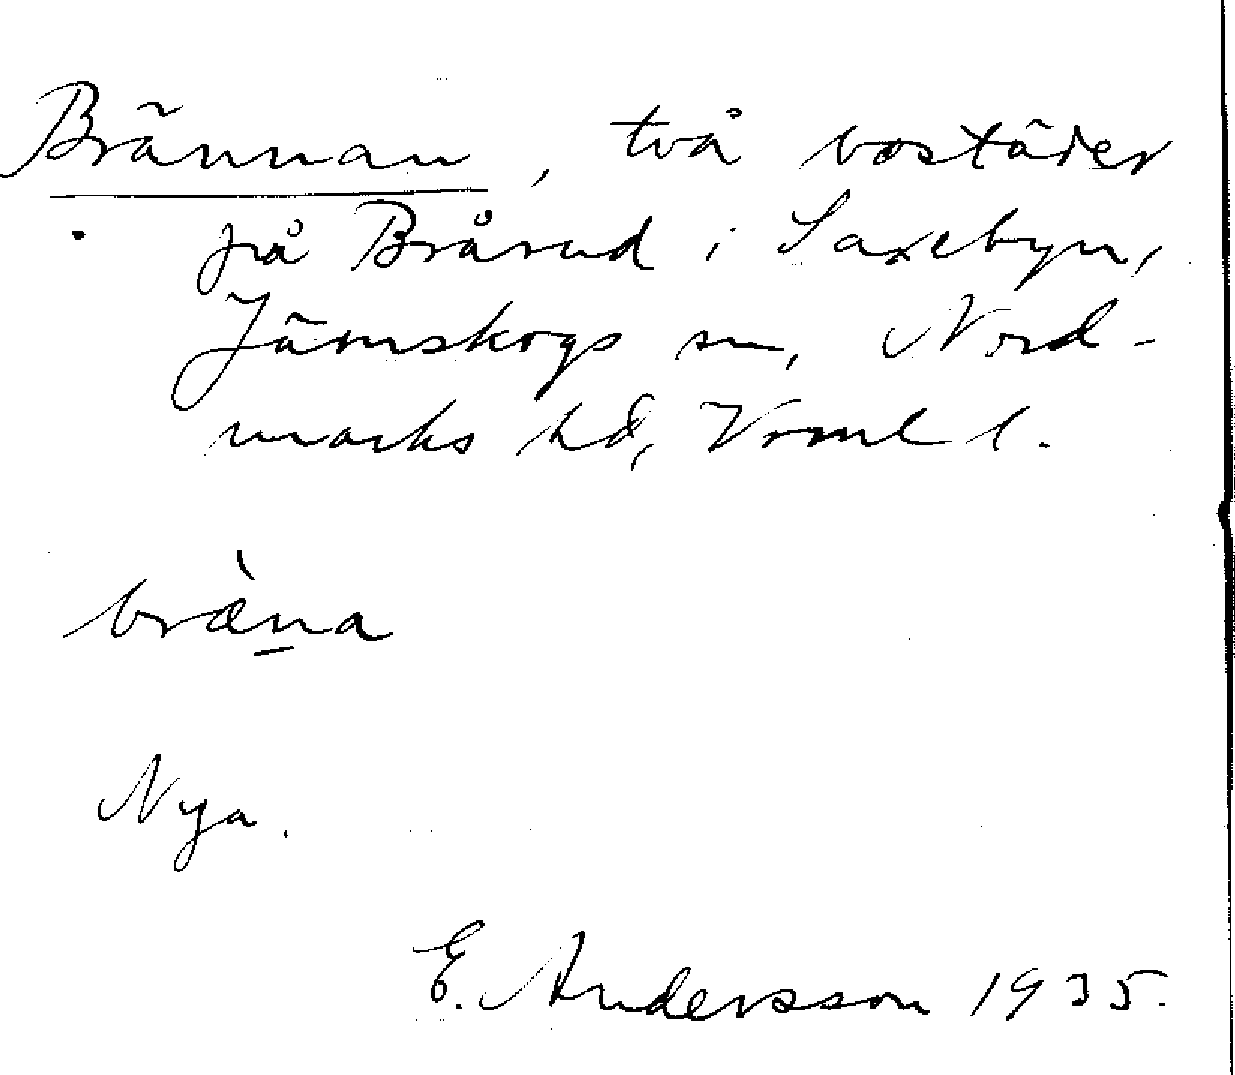 Brännan, två bostäder
på Brårud i Saxebyn,
Jämskogs sn, Nord-
marks hd, Vrml l.
bræ̀n̲a
Nya.
E. Andersson 1935.